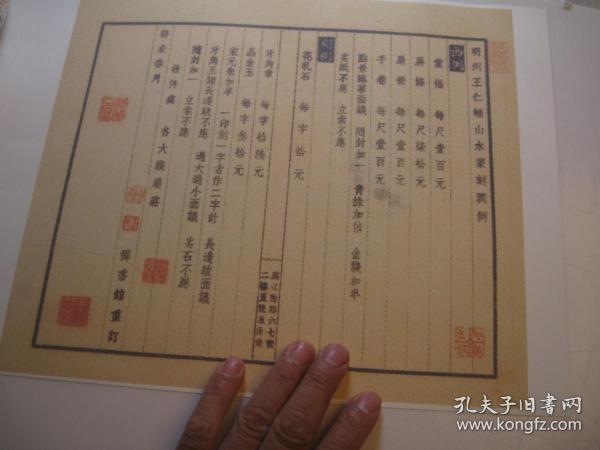 明州王仁輔山水篆刻潤例
畫例
堂幅 每尺壹百元
屏條 每尺柒拾元
扇面 每尺壹百元
手卷 每尺壹百元
點景點藥面議 隨封加一 青綠加倍 金箋加半
劣紙不應 立索不應
刻例
花乳石 每字拾元
牙角章 每字拾陸元
晶金玉 每字叁拾元
宋元朱加半 一印刻一字者作二字計 長邊跋面議
牙角玉銀長邊跋不應 過大過小面議 劣石不應
隨封加一 立索不應
收件處 各大牋扇莊
癸未春月
館重訂
孔夫子旧書网
www.kongfz.com